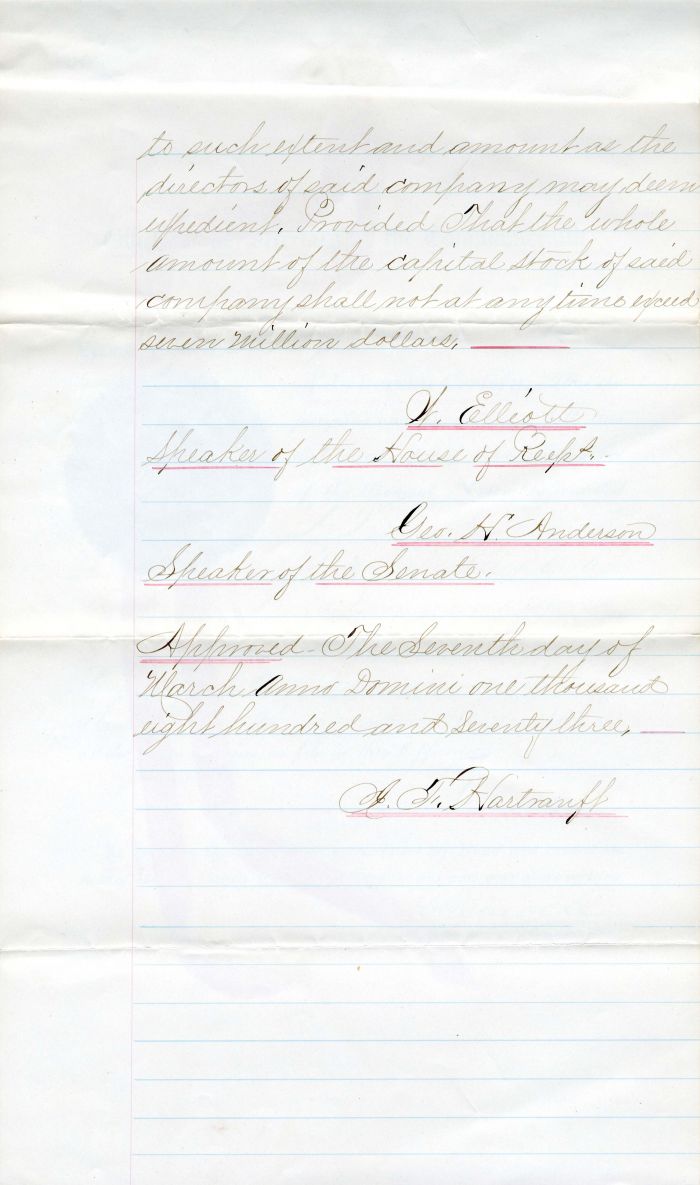 to such extent and amount as the
directors of said company may deem
expedient. Provided That the whole
amount of the capital stock of said
company shall not at any time exceed
seven Million dollars.
W. Elliott
Speaker of the House of Reept.
Geo. H. Anderson
Speaker of the Senate.
Approved - The Seventh day of
March Anno Domini one thousand
eight hundred and seventy three,
J. F. Hartranft